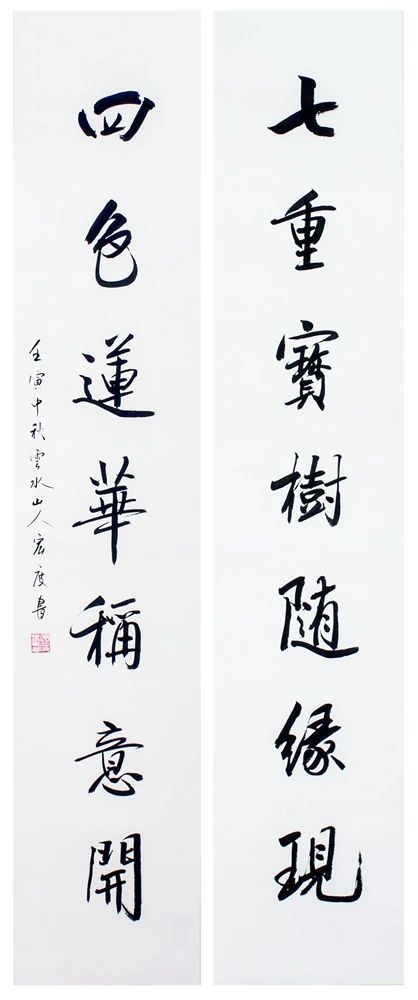 七重寶樹随緣現
四色蓮華稱意開
壬寅中秋雲水山人宏度書